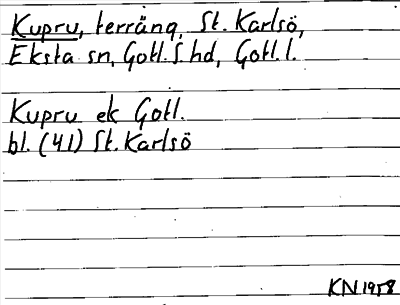 Kupru, terräng, St. Karlsö,
Eksta sn, Gotl. S. hd, Gotl. l.
Kupru ek Gotl.
bl. (41) St. Karlsö
KN 1958